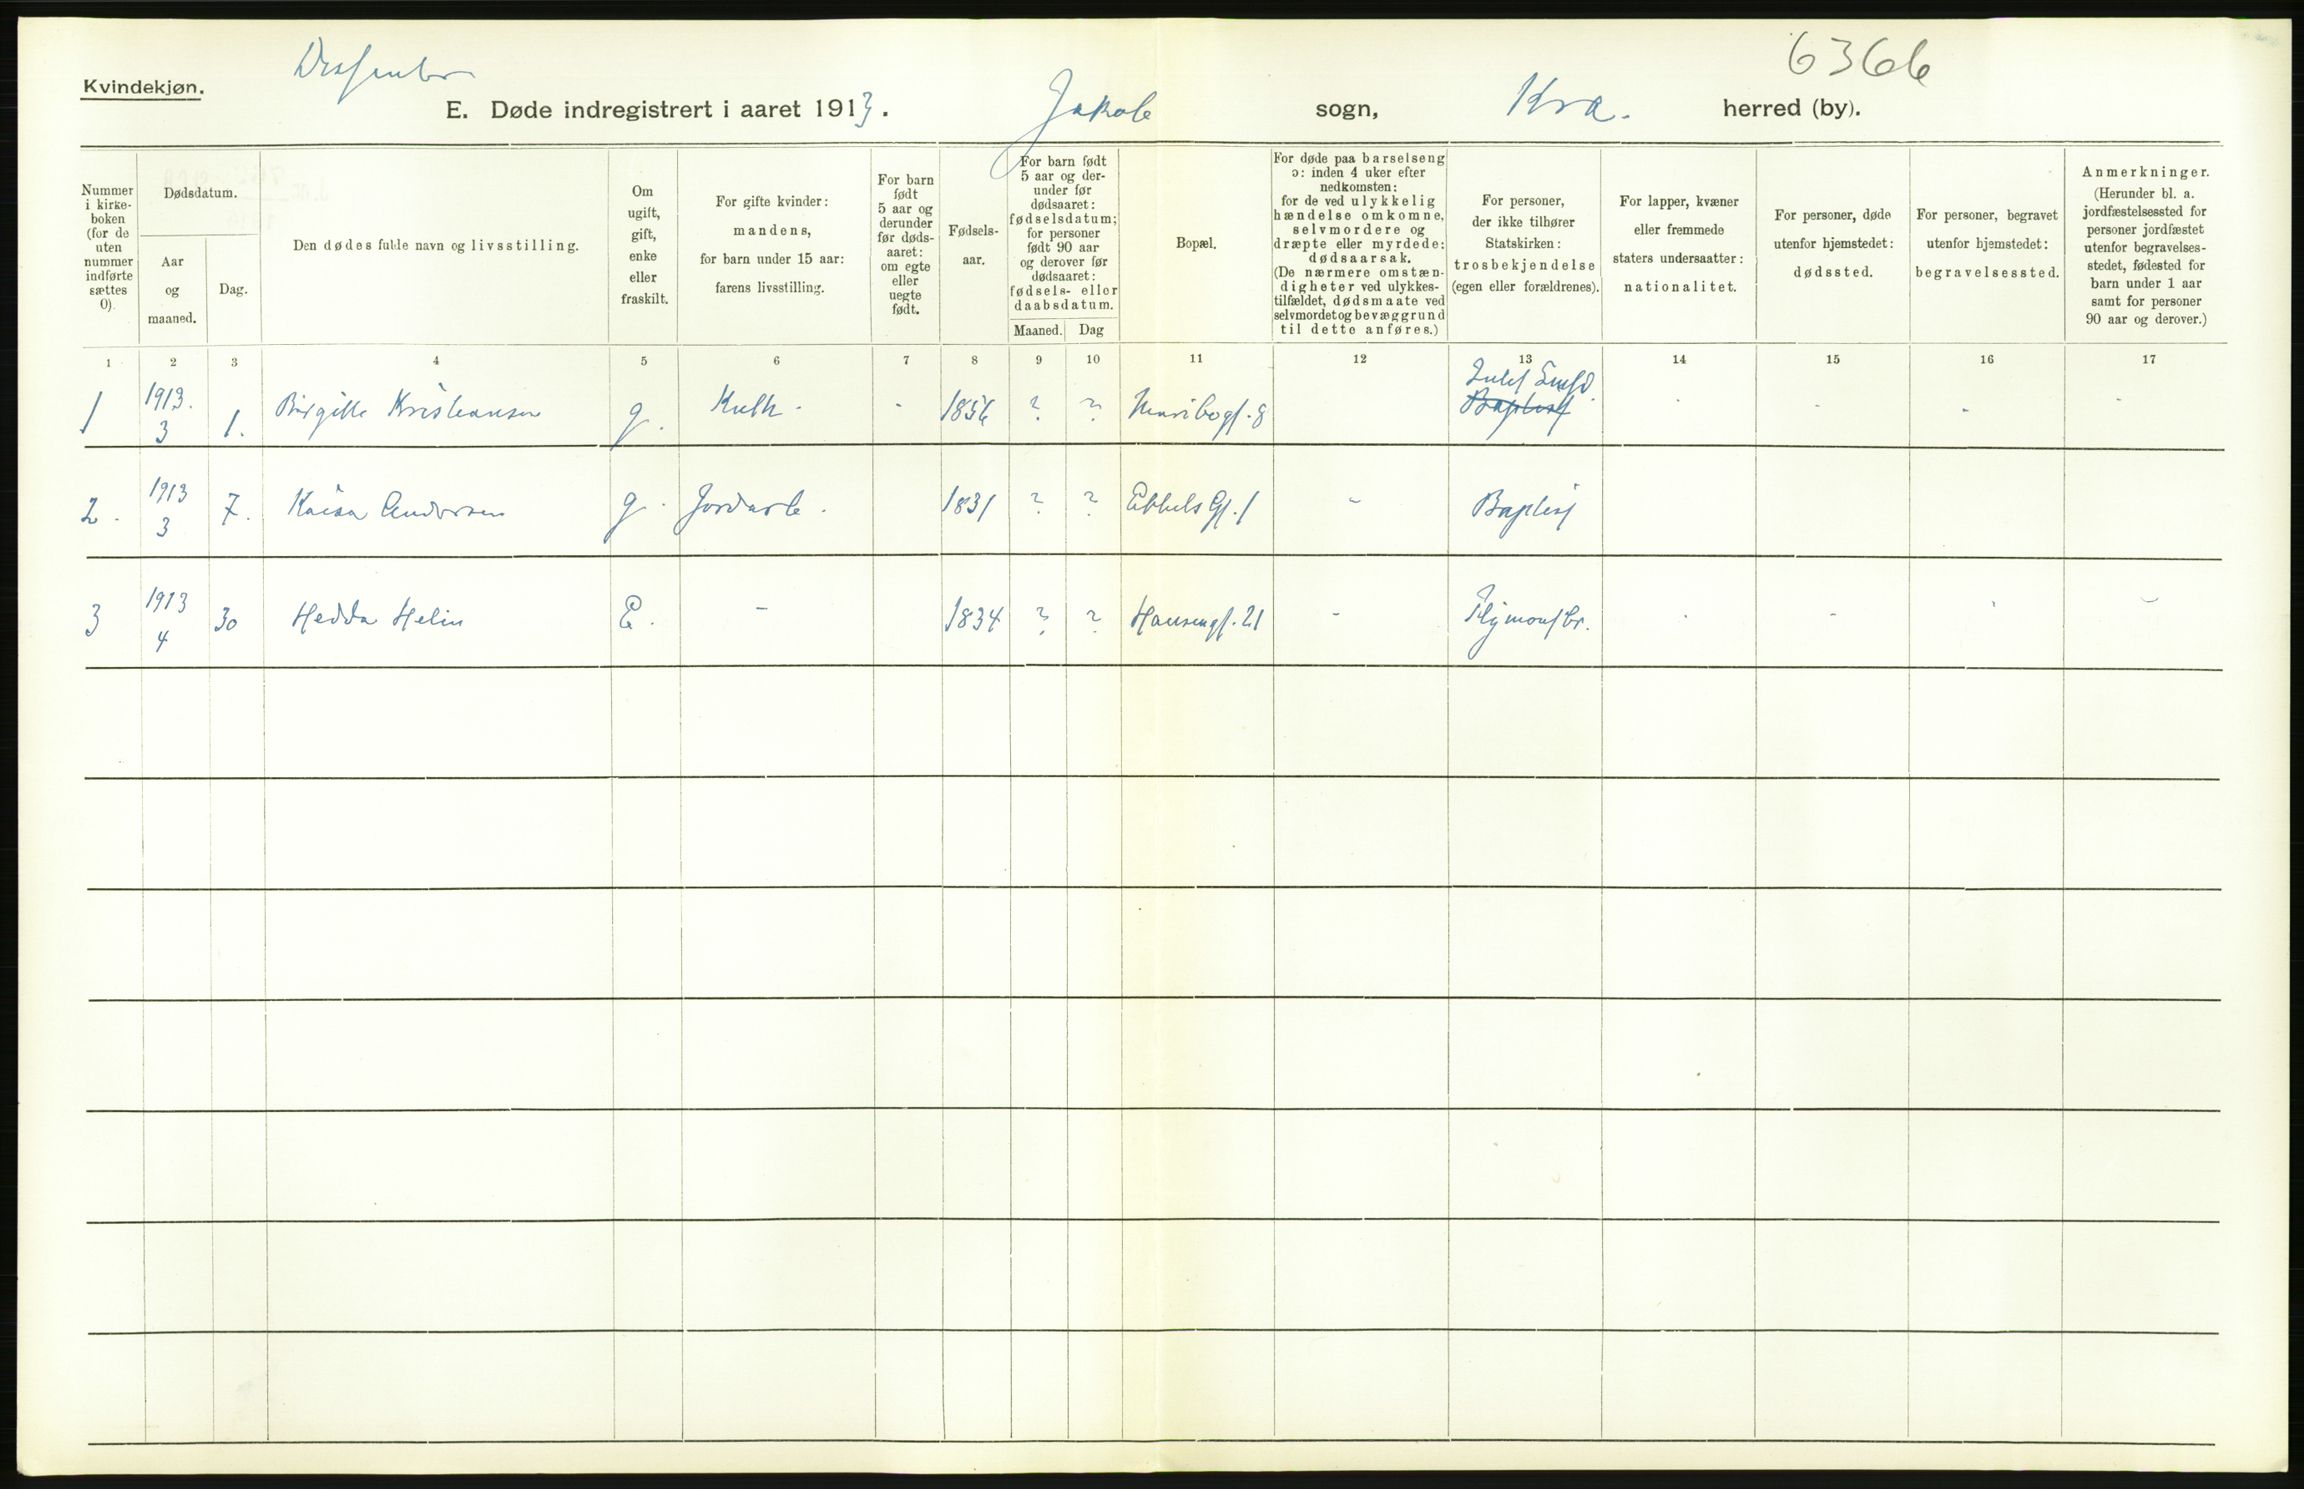 Kvindekjøn.
6366
E. Døde indregistrert i aaret 1913. Jakob sogn, Kra. herred (by).
Nummer
i kirke-
boken
(for de
uten
nummer
indførte
sættes
0).
Dødsdatum.
Aar
og
maaned.
Dag.
Den dødes fulde navn og livsstilling.
Om
ugift,
gift,
enke
eller
fraskilt.
For gifte kvinder:
mandens,
for barn under 15 aar:
farens livsstilling.
For barn
født
5 aar og
derunder
før døds-
aaret:
om egte
eller
uegte
født.
Fødsels-
aar.
For barn født
5 aar og der-
under før
dødsaaret:
fødselsdatum;
for personer
født 90 aar
og derover før
dødsaaret:
fødsels- eller
daabsdatum.
Maaned. Dag
Bopæl.
For døde paa barselseng
ɔ: inden 4 uker efter
nedkomsten:
for de ved ulykkelig
hændelse omkomne,
selvmordere og
dræpte eller myrdede:
dødsaarsak.
(De nærmere omstæn-
digheter ved ulykkes-
tilfældet, dødsmaate ved
selvmordet og bevæggrund
til dette anføres.)
For personer,
der ikke tilhører
Statskirken:
trosbekjendelse
(egen eller forældrenes).
For lapper, kvæner
eller fremmede
staters undersaatter:
nationalitet.
For personer, døde
utenfor hjemstedet:
dødssted.
For personer, begravet
utenfor hjemstedet:
begravelsessted.
Anmerkninger.
(Herunder bl. a.
jordfæstelsessted for
personer jordfæstet
utenfor begravelses-
stedet, fødested for
barn under 1 aar
samt for personer
90 aar og derover.)
1 2 3 4 5 6 7 8 9 10 11 12 13 14 15 16 17
1 1913. 3 1. Birgitte Kristiansen g. - 1856 ? ? Maribogt. 8 Baptist - - - -
2. 1913 3 7. Kaisa Andersen g. Jordarb. 1831 ? ? Ebbels Gt. 1 - Baptist
3 1913 4 30 Hedda Helin E. - 1834 ? ? Hausmgt. 21 - Plymoutbr. - - - -